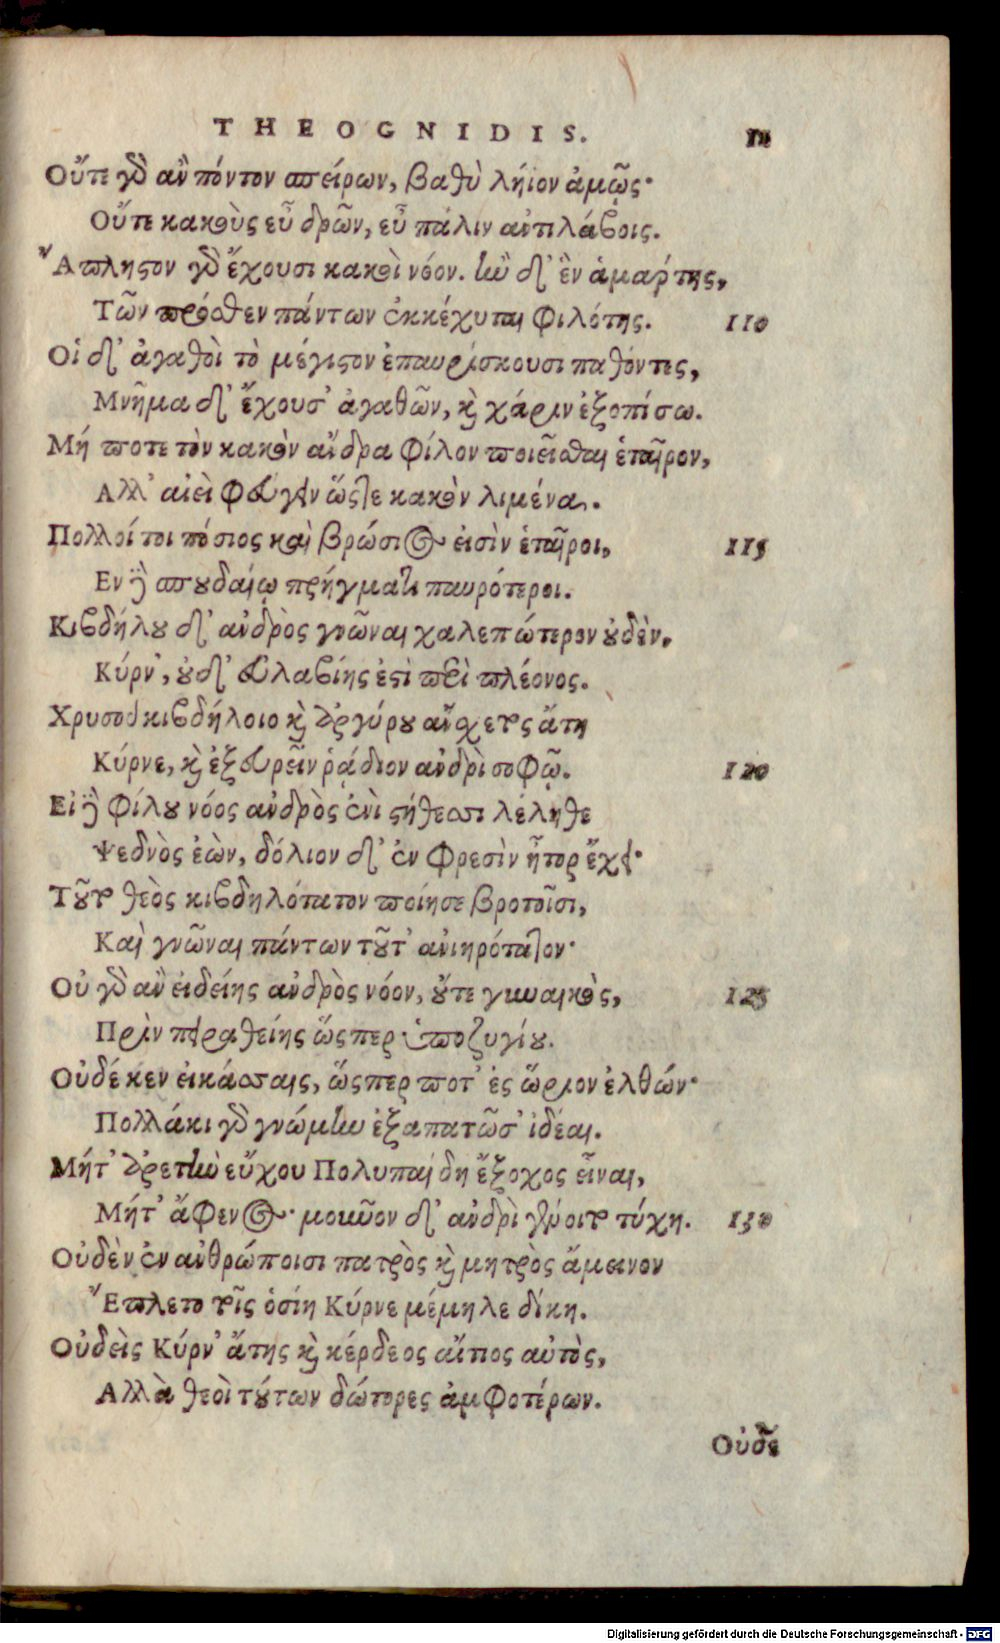 THEOGNIDIS.
Οὔτε γὰρ ἂν πόντον σπείρων, βαθὺ λήϊον ἀμῷς·
Οὔτε κακοὺς εὖ δρῶν, εὖ πάλιν ἀντιλάβοις.
Ἄπληστον γὰρ ἔχουσι κακοὶ νόον. ἢν δ' ἓν ἁμάρτης,
Τῶν πρόσθεν πάντων ἐκκέχυται φιλότης. 110
Οἱ δ' ἀγαθοὶ τὸ μέγιστον ἐπαυρίσκουσι παθόντες,
Μνῆμα δ' ἔχουσ' ἀγαθῶν, καὶ χάριν ἐξοπίσω.
Μή ποτε τὸν κακὸν ἄνδρα φίλον ποιεῖσθαι ἑταῖρον,
Αλλ' αἰεὶ φεύγειν ὥστε κακὸν λιμένα.
Πολλοί τοι πόσιος καὶ βρώσιός εἰσὶν ἑταῖροι, 115
Εν δὲ σπουδαίῳ πρήγματι παυρότεροι.
Κιβδήλου δ' ἀνδρὸς γνῶναι χαλεπώτερον οὐδὲν,
Κύρν', οὐδ' εὐλαβίης ἐστὶ περὶ πλέονος.
Χρυσοῦ κιβδήλοιο καὶ ἀργύρου ἄνσχετος ἄτη
Κύρνε, καὶ ἐξευρεῖν ῥᾴδιον ἀνδρὶ σοφῷ. 120
Εἰ δὲ φίλου νόος ἀνδρὸς ἐνὶ στήθεσσι λέληθε
Ψεδνὸς ἐὼν, δόλιον δ' ἐν φρεσὶν ἦτορ ἔχει·
Τοῦτο θεὸς κιβδηλότατον ποίησε βροτοῖσι,
Καὶ γνῶναι πάντων τοῦτ' ἀνιηρότατον·
Οὐ γὰρ ἂν εἰδείης ἀνδρὸς νόον, οὔτε γυναικὸς, 125
Πρὶν πειραθείης ὥσπερ ὑποζυγίου.
Οὐδέ κεν εἰκάσσαις, ὥσπερ ποτ' ἐς ὥριον ἐλθών·
Πολλάκι γὰρ γνώμην ἐξαπατῶσ' ἰδέαι.
Μήτ' ἀρετὴν εὔχου Πολυπαίδη ἔξοχος εἶναι,
Μήτ' ἄφενος· μοῦνον δ' ἀνδρὶ γένοιτο τύχη. 130
Οὐδὲν ἐν ἀνθρώποισι πατρὸς καὶ μητρὸς ἄμεινον
Ἔπλετο τοῖς ὁσίη Κύρνε μέμηλε δίκη.
Οὐδεὶς Κύρν' ἄτης καὶ κέρδεος αἴτιος αὐτὸς,
Αλλὰ θεοὶ τούτων δώτορες ἀμφοτέρων.
Οὐδὲ
Digitalisierung gefördert durch die Deutsche Forschungsgemeinschaft - DFG